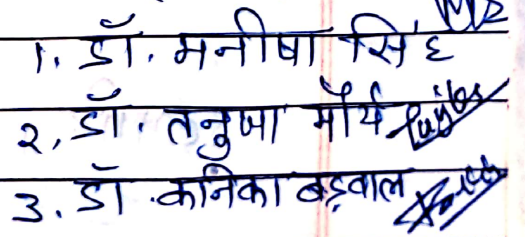 1. डॉ. मनीषा सिंह
२. डॉ. तनुजा मौर्य
3. डॉ. कनिका बड़वाल